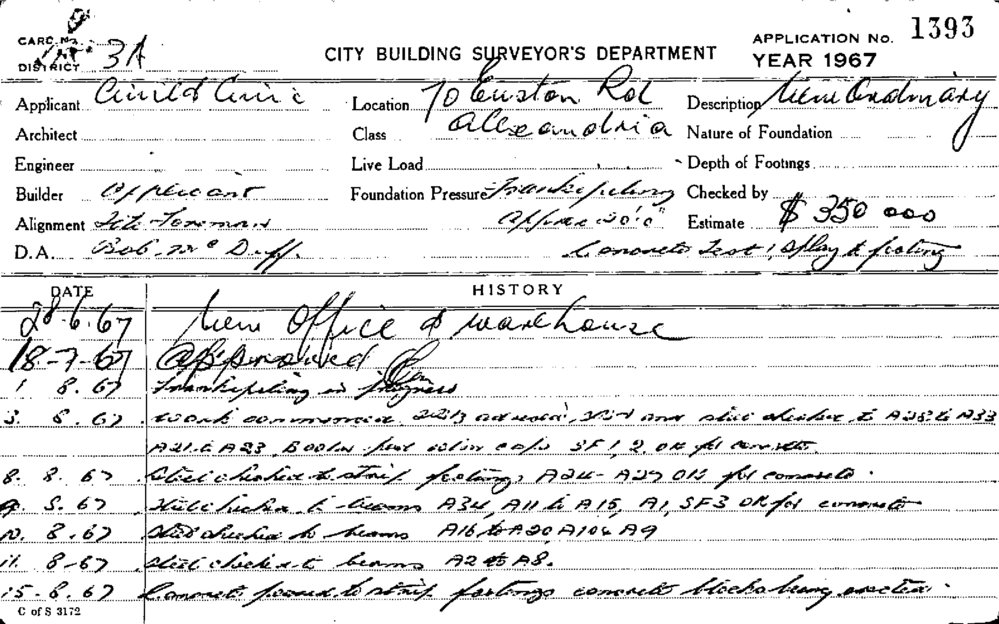 CARD No.
DISTRICT 3A
CITY BUILDING SURVEYOR'S DEPARTMENT
APPLICATION No. 1393
YEAR 1967
Applicant Civil & Civic Location 70 Euston Rd Description New Ordinary
Architect Class Alexandria Nature of Foundation
Engineer Live Load Depth of Footings
Builder Applicant Foundation Pressure Frankipiling Checked by
Alignment Site Foreman Approx Estimate $350 000
D.A. Bob Mc Duff. Concrete Test, Splay to footing
DATE HISTORY
28.6.67 New Office & warehouse
18-7-67 Approved
1 8. 67 Frankipiling in progress
3. 8. 67 Work commenced. and steel checked to A28 to A33
A21 to A23, caps SF 1, 2, OK for concrete.
8. 8. 67 Steel checked to strip footings A24 - A27 OK for concrete.
9. 8. 67 Steel checked to beams A34, A11 to A15, A1, SF3 OK for concrete
10. 8. 67 Steel checked to beams A16 to A20, A10 & A9
11. 8-67 Steel checked to beams A2 to A8.
15. 8. 67 Concrete poured to strip footings concrete blocks being erected.
C of S 3172